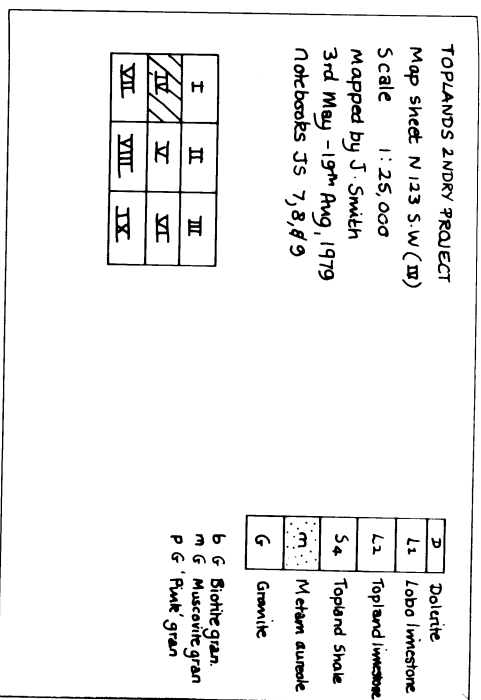 TOPLANDS 2NDRY PROJECT
Map sheet N 123 S.W (IV)
Scale 1:25,000
Mapped by J. Smith
3rd May - 19th Aug, 1979
Notebooks JS 7,8,& 9
I II III
IV V VI
VII VIII IX
D Dolerite
L1 Lobo limestone
L2 Topland limestone
S4 Topland Shale
m Metam aureole
G Granite
b G Biotite gran.
m G Muscovite gran
p G 'Pink' gran